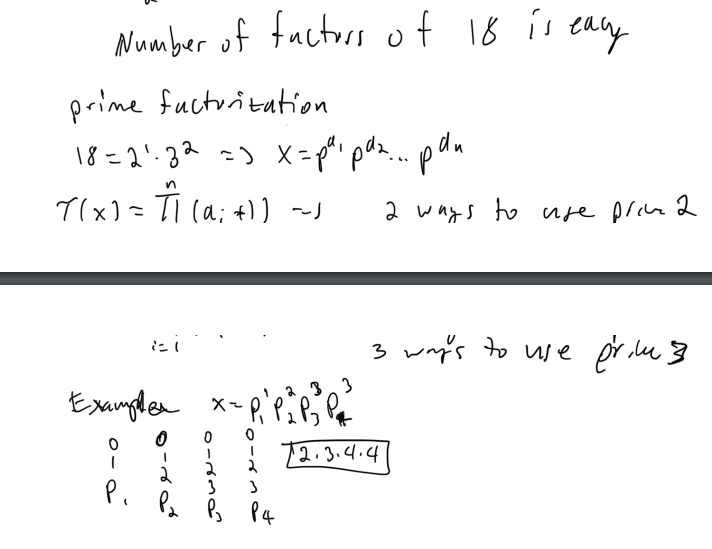 Number of factors of 18 is easy
prime factorization
18 = 2¹·3² => x = p^a₁ p^a₂ ... p^aₙ
τ(x) = ∏ⁿ (aᵢ+1) → 2 ways to use prime 2
i=1 3 ways to use prime 3
Examples x = p₁¹ p₂² p₃³ p₄³
0 0 0 0
1 1 1 1 2·3·4·4
2 2 2
3 3
p₁ p₂ p₃ p₄